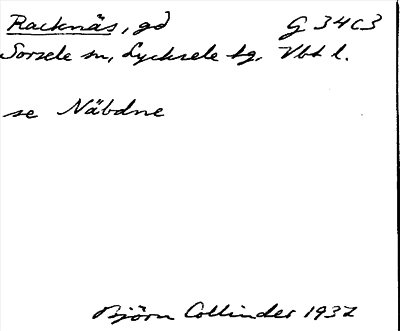 Racknäs, gd G 34 C3
Sorsele sn, Lycksele tg. Vbt l.
se Näbdne
Björn Collinder 1937